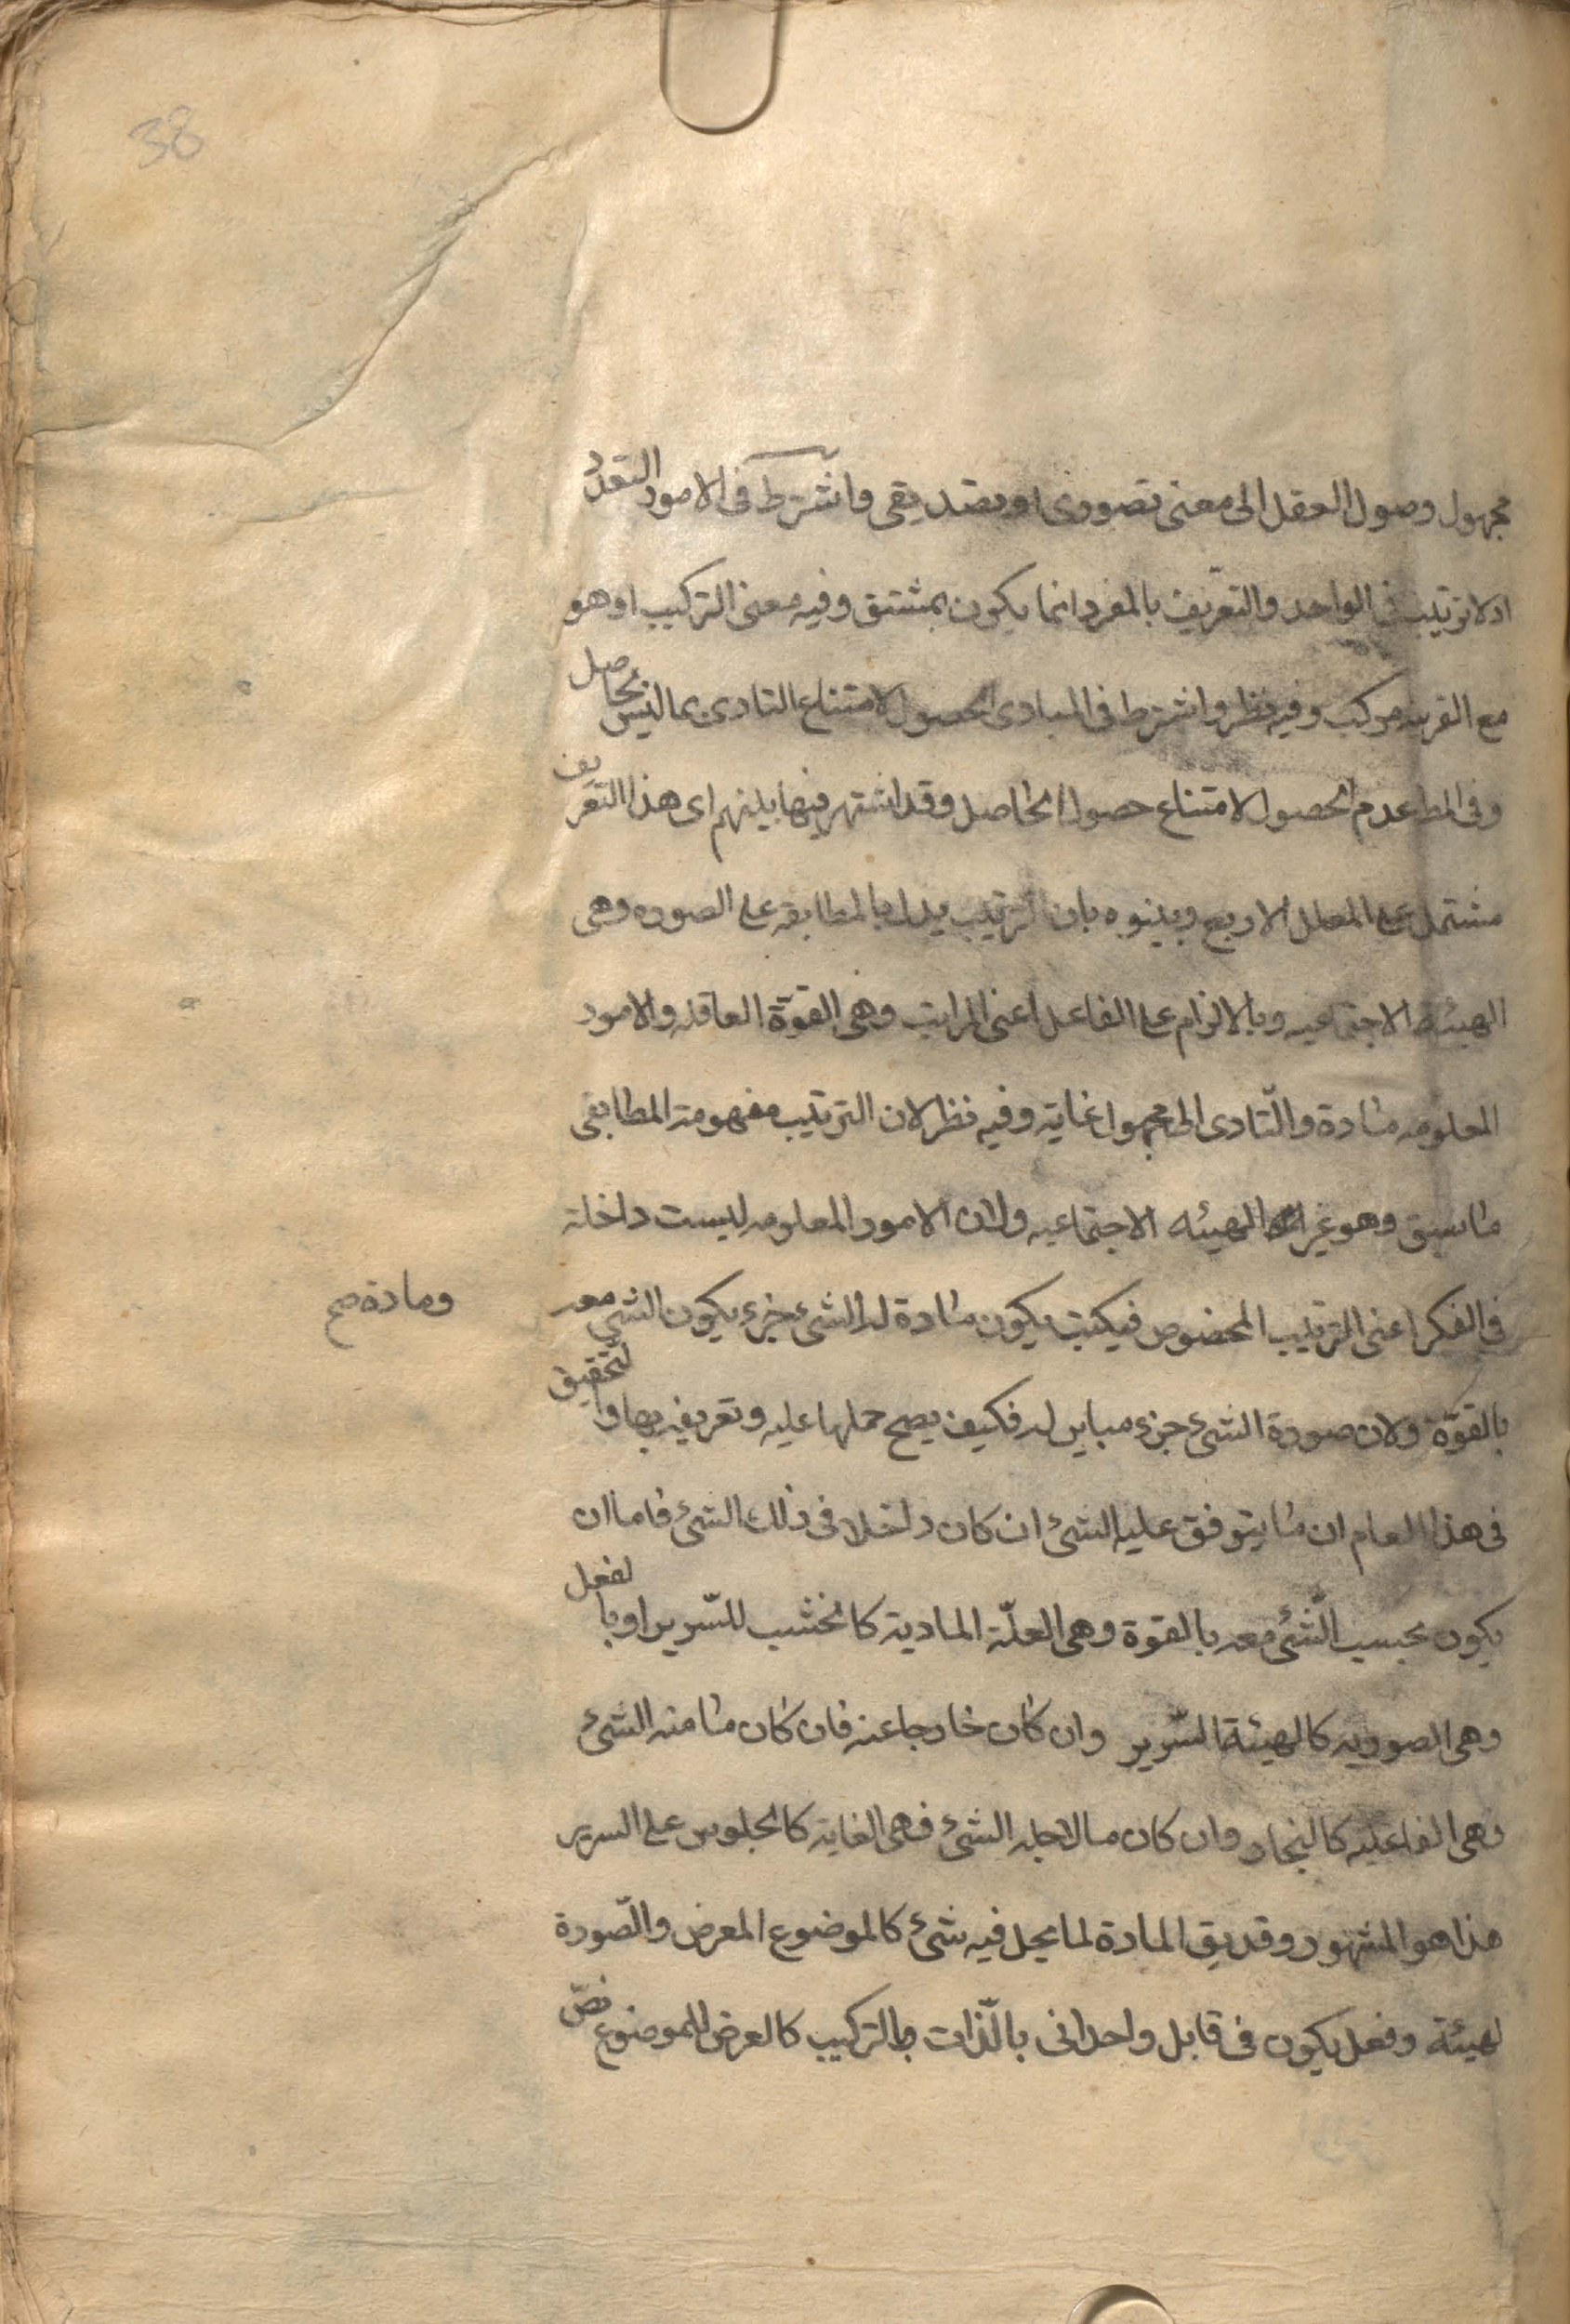 38
مجهول وصول العقل الى معنى تصورى او تصديقى واشترط فى الامور التعدّد
اذ لا ترتيب فى الواحد والتعريف بالمفرد انما يكون بمشتق وفيه معنى التركيب او هو
مع القرينه مركب وفيه نظر واشترط فى المبادى الحصول لامتناع التادى بما ليس بحاصل
وفى المط عدم الحصول لامتناع حصول الحاصل وقد اشتهر فيما بينهم اى هذا التعريف
مشتمل على العلل الاربع وبينوه بان الترتيب يدل بالمطابقه على الصوره وهى
الهيئة الاجتماعيه وبالالزام على الفاعل اعنى المرتب وهى القوّة العاقله والامور
المعلومه مادة والتّادى الى مجهول غاية وفيه نظر لان الترتيب مفهومه المطابقى
ما سبق وهو غير الهيئه الاجتماعيه ولان الامور المعلومه ليست داخلة
فى الفكر اعنى الترتيب المخصوص فكيف يكون مادة له الشئ جزء يكون الشئ معه
ومادة صح
بالقوّة ولان صورة الشئ جزء مباين له فكيف يصح حملها عليه وتعريفه بها والتحقيق
فى هذا العام ان ما يتوقف عليه الشئ ان كان داخلا فى ذلك الشئ فاما ان
يكون بحسب الشّئ معه بالقوة وهى العلّة المادية كالخشب للسّرير او بالفعل
وهى الصوريه كالهيئة السّرير وان كان خارجا عنه فان كان ما منه الشئ
وهى الفاعليه كالنجار وان كان ما لاجله الشئ فهى الغاية كالجلوس على السرير
هذا هو المشهور وقد يق المادة لما يحل فيه شئ كالموضوع المعرض والصّورة
لهيئة وفعل يكون فى قابل واحدانى بالذّات او بالتركيب كالعرض للموضوع نصّ